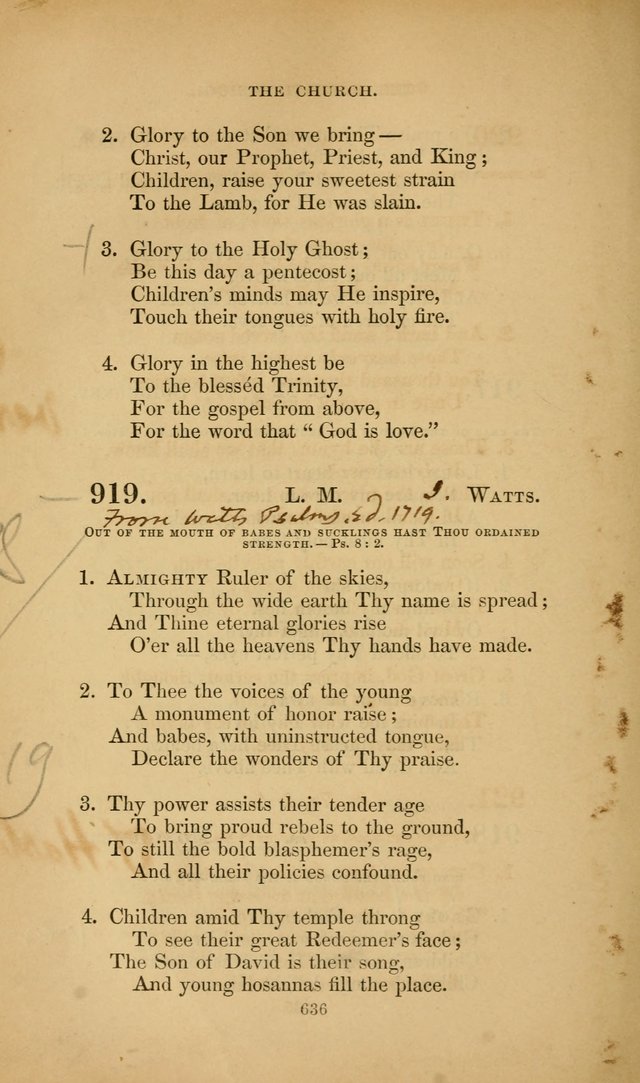 THE CHURCH.
2. Glory to the Son we bring —
Christ, our Prophet, Priest, and King;
Children, raise your sweetest strain
To the Lamb, for He was slain.
3. Glory to the Holy Ghost;
Be this day a pentecost;
Children's minds may He inspire,
Touch their tongues with holy fire.
4. Glory in the highest be
To the blesséd Trinity,
For the gospel from above,
For the word that “ God is love.”
919. L. M. I. WATTS.
From Psalms 1719.
OUT OF THE MOUTH OF BABES AND SUCKLINGS HAST THOU ORDAINED
STRENGTH. — PS. 8 : 2.
1. ALMIGHTY Ruler of the skies,
Through the wide earth Thy name is spread;
And Thine eternal glories rise
O'er all the heavens Thy hands have made.
2. To Thee the voices of the young
A monument of honor raise;
And babes, with uninstructed tongue,
Declare the wonders of Thy praise.
3. Thy power assists their tender age
To bring proud rebels to the ground,
To still the bold blasphemer's rage,
And all their policies confound.
4. Children amid Thy temple throng
To see their great Redeemer's face;
The Son of David is their song,
And young hosannas fill the place.
636
19